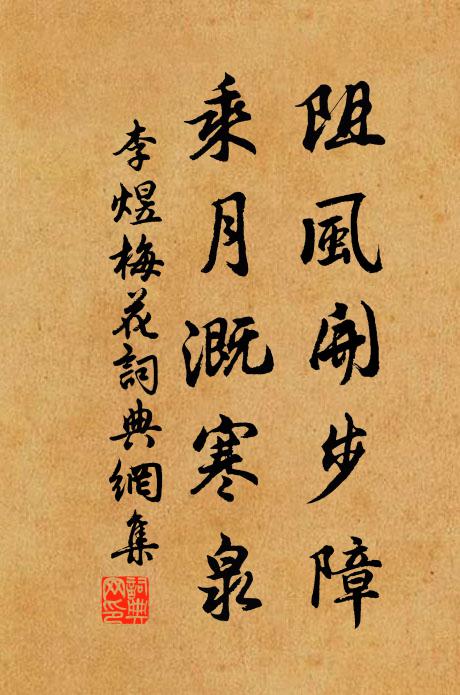 阻風開步障
乘月溉寒泉
李煜梅花詞典網集
詞典网印